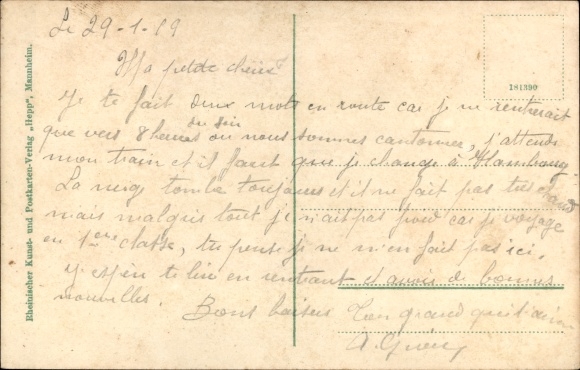 Le 29-1-19
Ma petite chérie
Je te fait deux mots en route car je ne rentrerait
que vers 8 heures du soir ou nous sommes cantonnes, j'attends
mon train et il faut que je change à
La neige tombe toujours et il ne fait pas très chaud
mais malgrés tout je n'ait pas froid car je voyage
en 1ere classe, tu pense je ne m'en fait pas ici.
J'espère te lire en rentrant et avoir de bonnes
nouvelles. Bons baisers Ton grand qui t'aime
A.
181390
Rheinischer Kunst- und Postkarten-Verlag „Hepp", Mannheim.